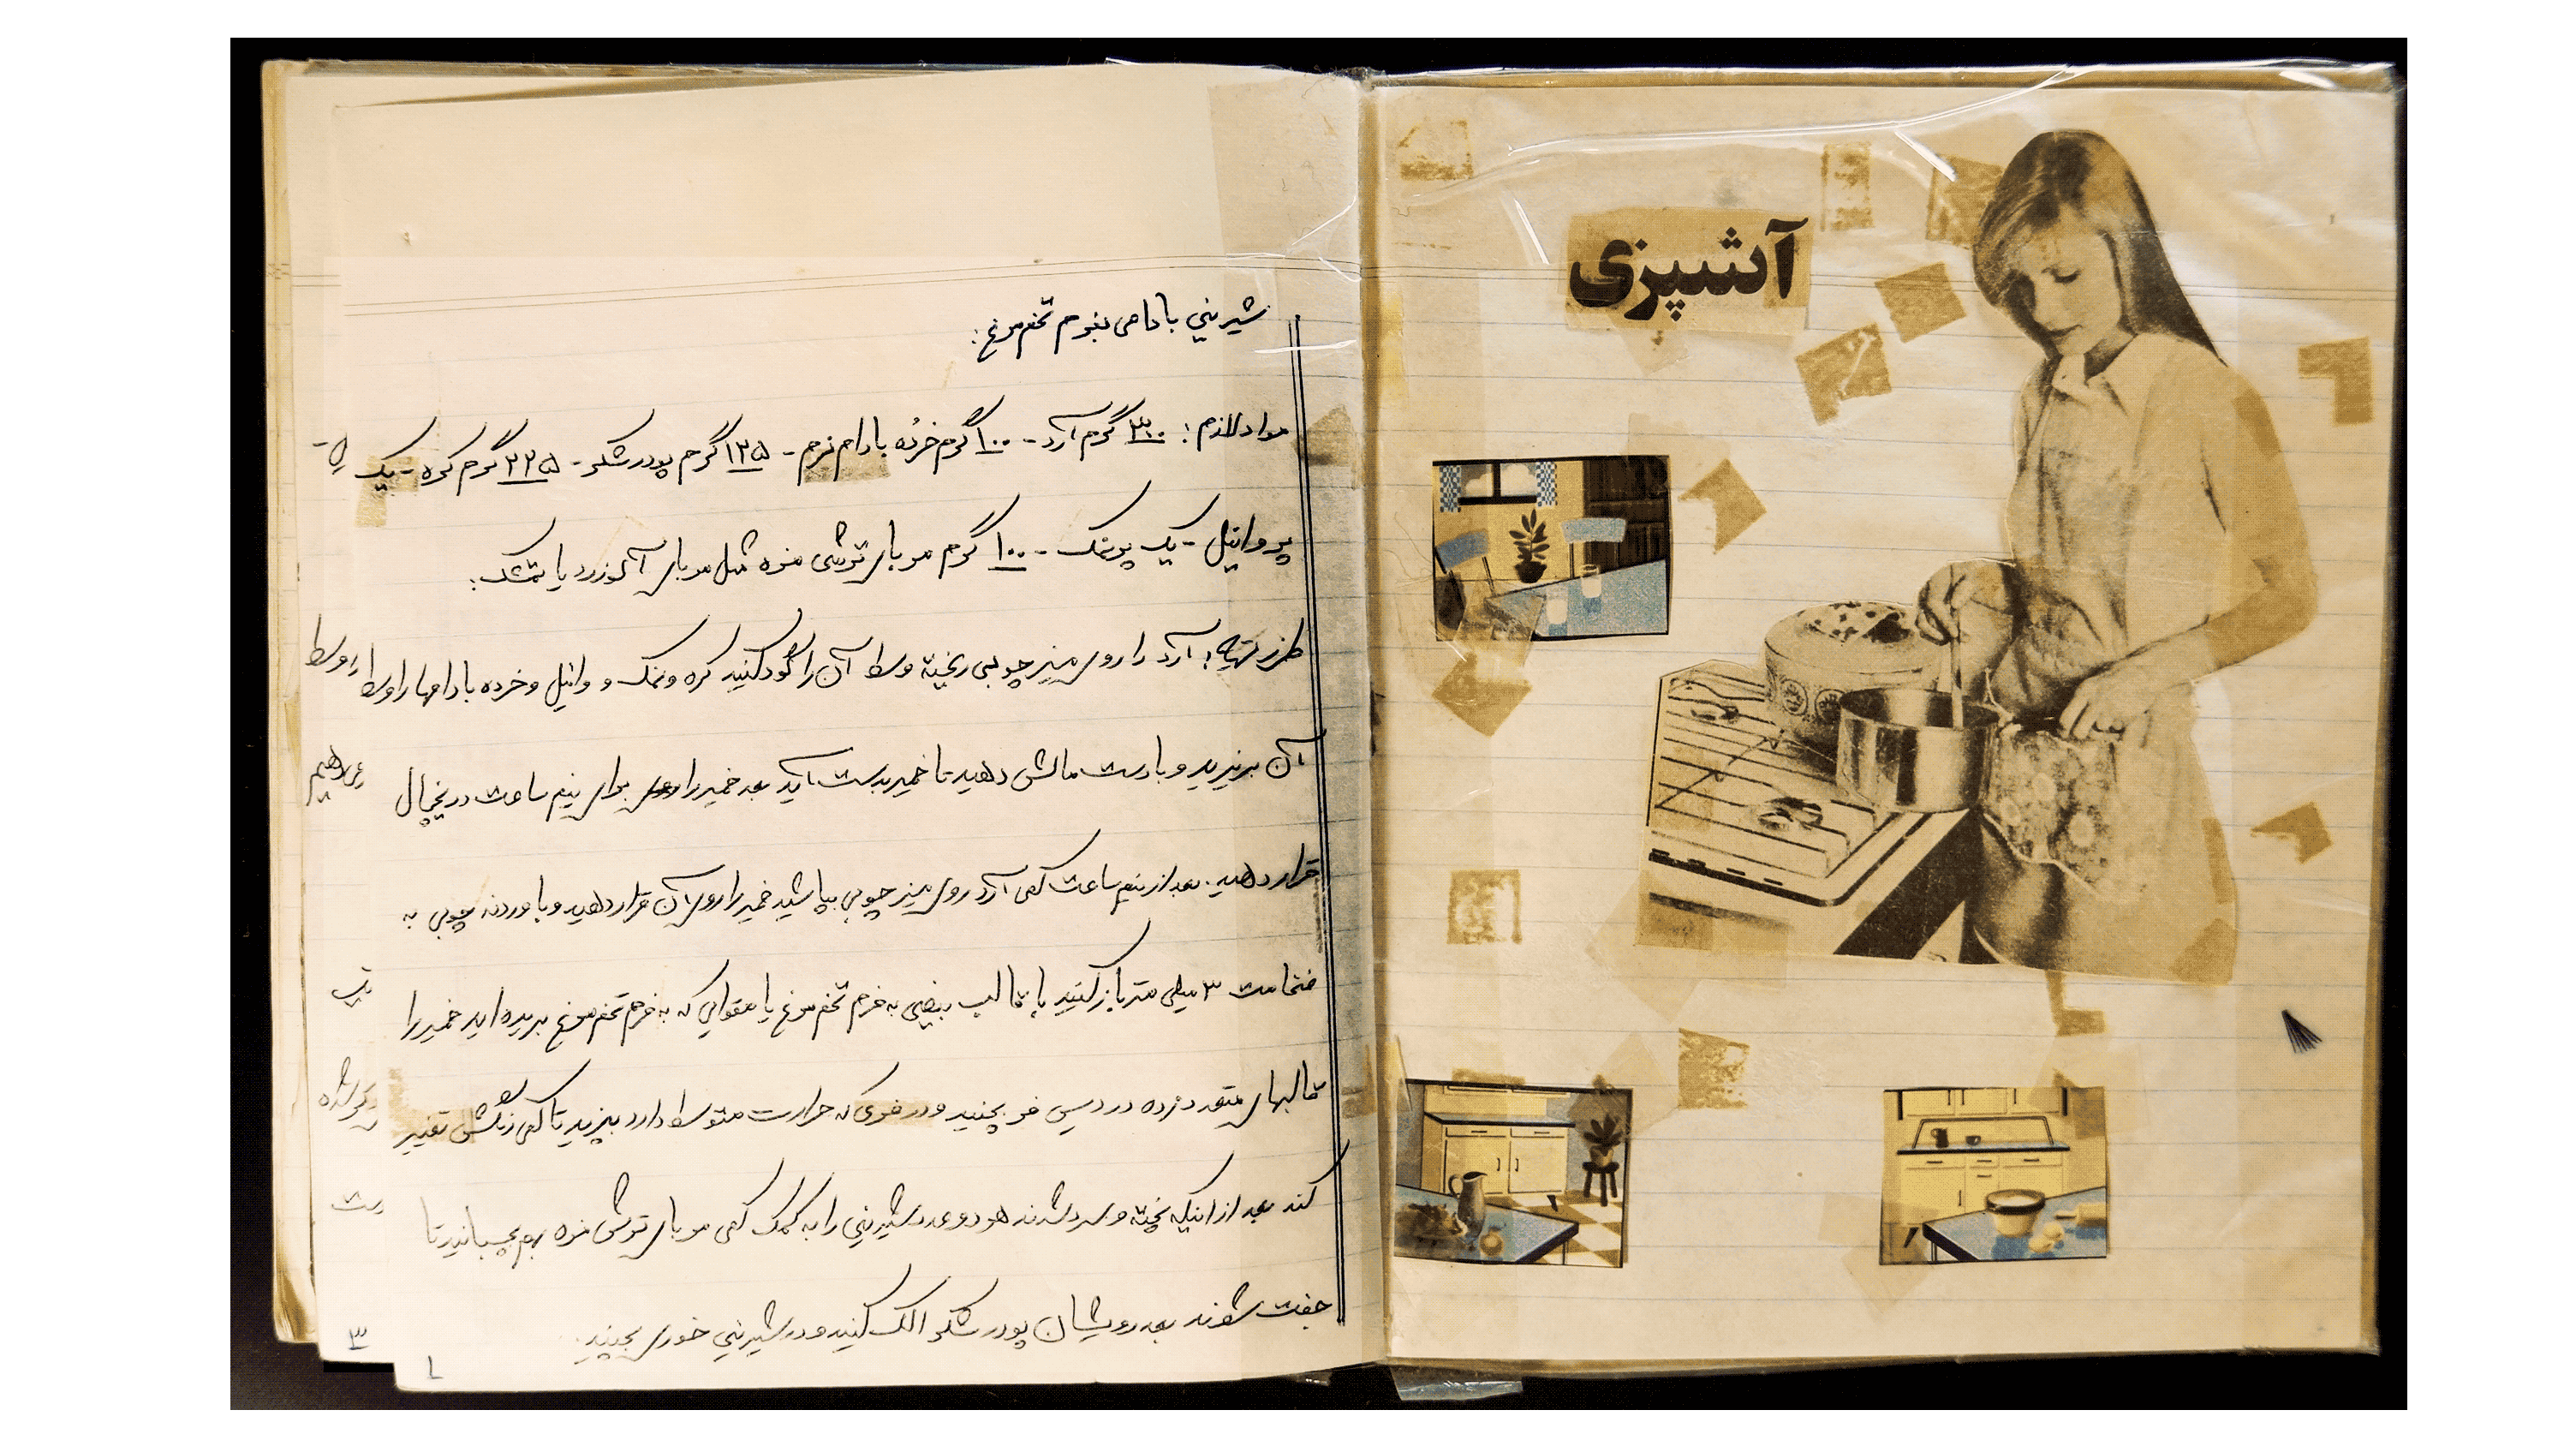 آشپزی
شیرینی بادامی بفرم تخم مرغ:
مواد لازم: ۳۰۰ گرم آرد - ۱۰۰ گرم خرده بادام نرم - ۱۲۵ گرم پودر شکر - ۲۲۵ گرم کره - یک
پر وانیل - یک پر نمک - ۱۰۰ گرم مربای ترشی مزه مثل مربای آلو زرد یا تمشک:
طرز تهیه: آرد را روی میز چوبی ریخته وسط آن را گود کنید کره و نمک و وانیل و خرده بادامها را وسط
آن بریزید و با دست مالش دهید تا خمیر بدست آید بعد خمیر را برای نیم ساعت در یخچال
قرار دهید. بعد از نیم ساعت کمی آرد روی میز چوبی بپاشید خمیر را روی آن قرار دهید و با وردنه چوبی به
ضخامت ۳ میلی متر باز کنید با قالب بیضی به فرم تخم مرغ یا مقوایی که به فرم تخم مرغ بریده اید خمیر را
قالبهای متعدد زده در دیس فر بچینید و در فری که حرارت متوسط دارد بپزید تا کمی رنگش تغییر
کند بعد از اینکه پخته و سرد شدند هر دو عدد شیرینی را به کمک کمی مربای ترش مزه بهم بچسبانید تا
جفت شوند بعد رویشان پودر شکر الک کنید و در شیرینی خوری بچینید.
وسط
شده
۳